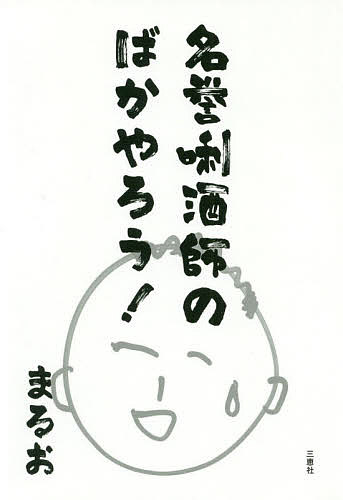 名誉唎酒師の
ばかやろう!
まるお
三恵社